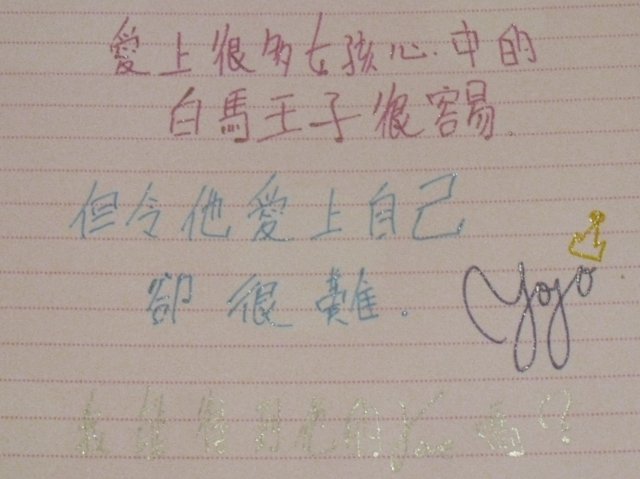 愛上很多女孩心中的
白馬王子很容易.
但令他愛上自己
卻很難.
yoyo
我能得到他的 嗎?